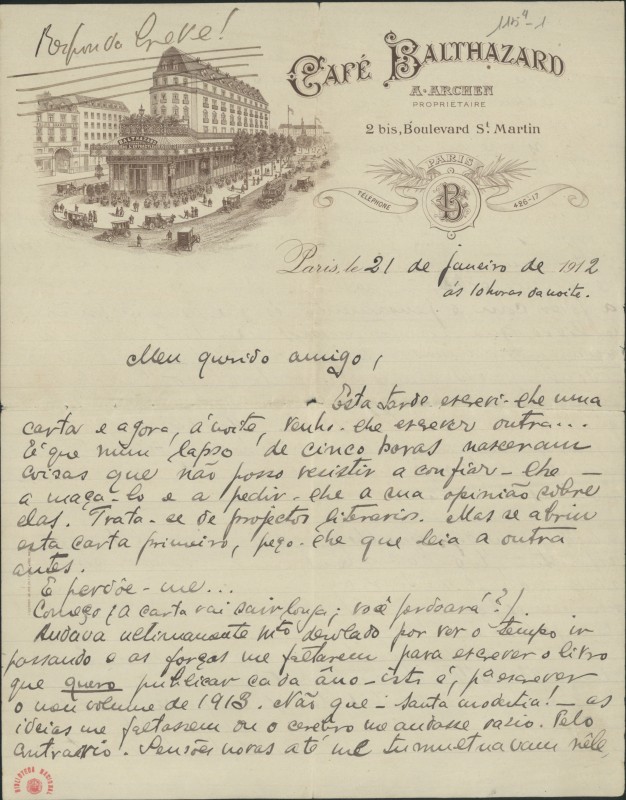 Responda breve!
115⁴-1
CAFÉ BALTHAZARD
A. ARCHEN
PROPRIÉTAIRE
2 bis, Boulevard St. Martin
PARIS
TÉLÉPHONE
B
426-17
BALTHAZARD
Paris, le 21 de janeiro de 1912
ás 10 horas da noite.
Meu querido amigo,
Esta tarde escrevi-lhe uma
carta e agora, á noite, venho-lhe escrever outra...
É que num lapso de cinco horas nasceram
coisas que não posso resistir a confiar-lhe —
a maça-lo e a pedir-lhe a sua opinião sobre
elas. Trata-se de projectos literarios. Mas se abriu
esta carta primeiro, peço-lhe que leia a outra
antes.
E perdôe-me...
Começo (a carta vai sair longa; você perdoará?).
Andava ultimamente mto desolado por ver o tempo ir
passando e as forças me faltarem para escrever o livro
que quero publicar cada âno — isto é, pa escrever
o meu volume de 1913. Não que — santa modestia! — as
ideias me faltassem ou o cerebro me andasse vazio. Pelo
contrario. Sensões novas até me tumultuavam nêle,
BIBLIOTECA NACIONAL